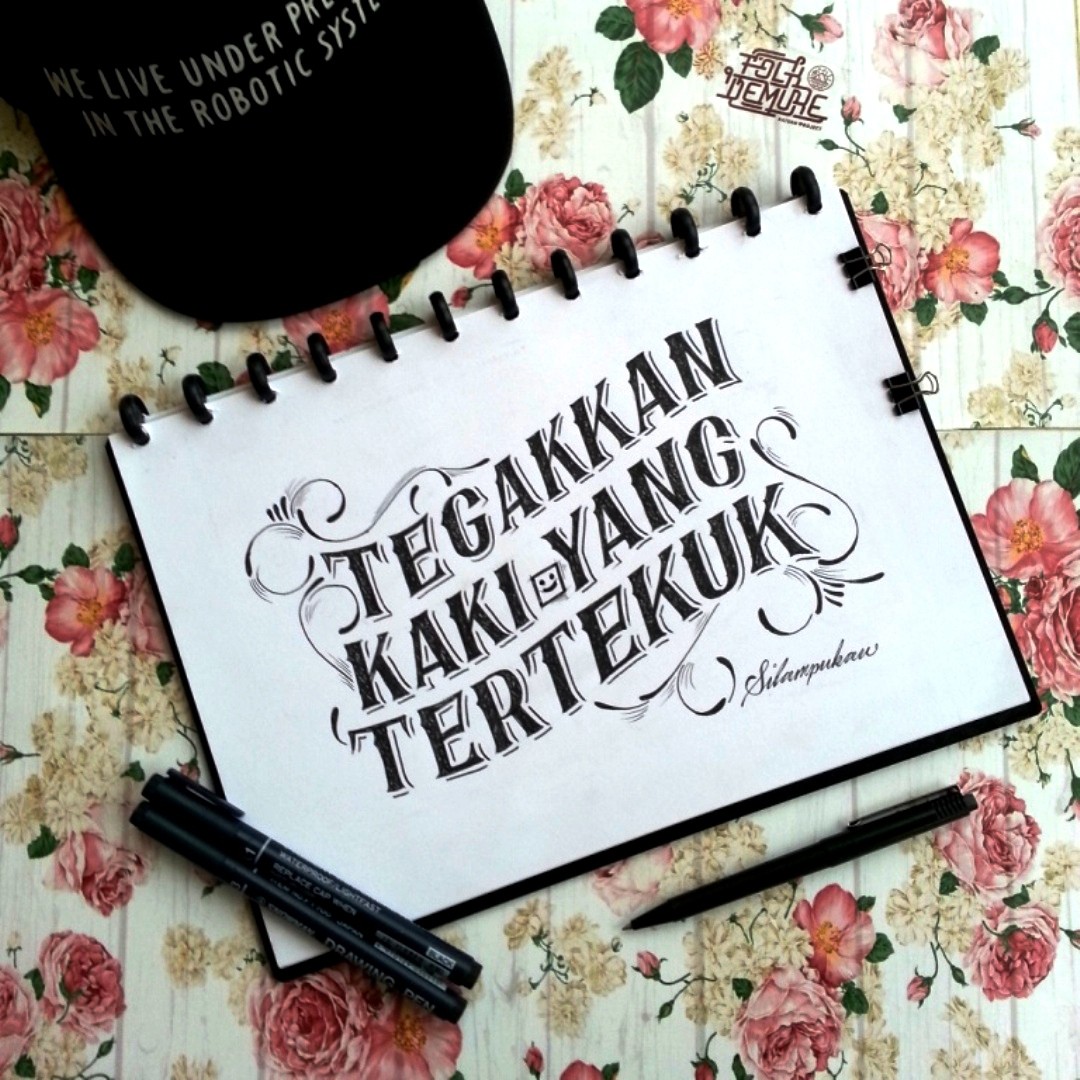 WE LIVE UNDER PRE
IN THE ROBOTIC SYSTE
FOLK
DEMUHE
TEGAKKAN
KAKI YANG
TERTEKUK
Silampukau
WATERPROOF·LIGHTFAST
REPLACE CAP WHEN
BLACK
DRAWING PEN